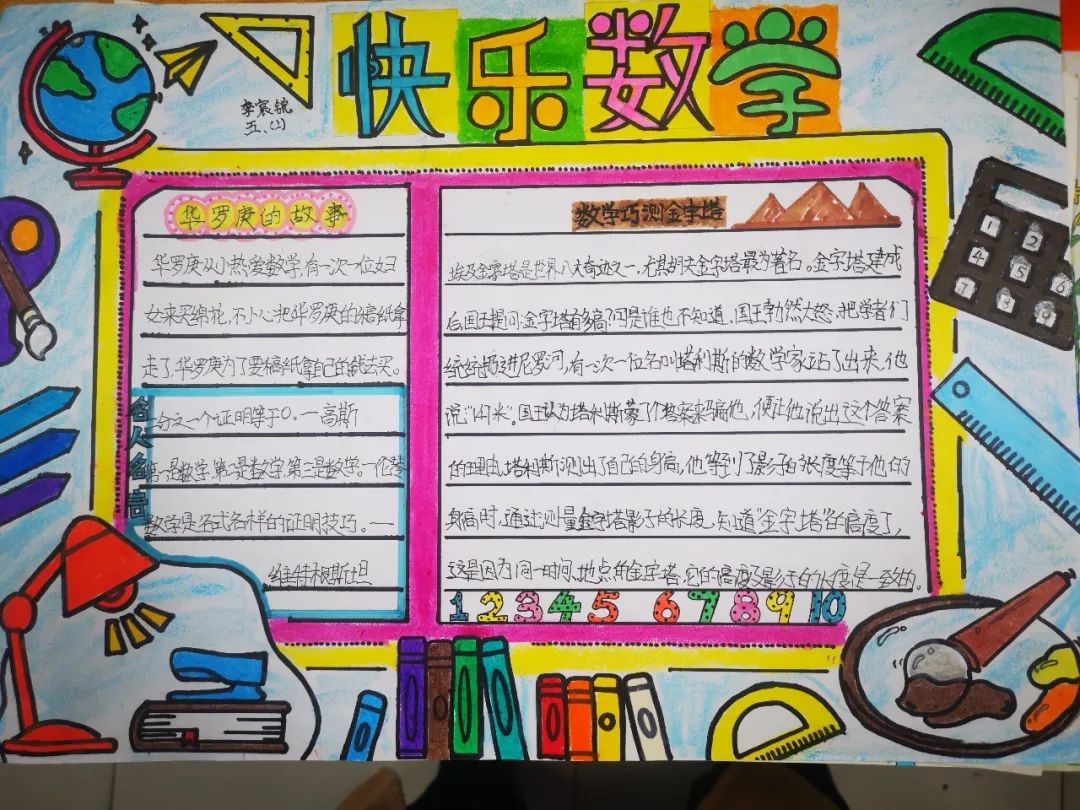 快乐数学
李宸锐
五、(2)
华罗庚的故事
华罗庚从小热爱数学,有一次一位妇
女来买绵花,不小心把华罗庚的稿纸拿
走了,华罗庚为了要稿纸拿自己的钱去买。
名人名言
分之一个证明等于0。一高斯
第一是数学,第二是数学,第三是数学。一伦琴
数学是各式各样的证明技巧。一
维特根斯坦
数学巧测金字塔
埃及金字塔是世界八大奇迹之一,尤其胡夫金字塔最为著名。金字塔建成
后国王提问:金字塔有多高?可是谁也不知道,国王勃然大怒,把学者们
统统扔进尼罗河,有一次一位名叫塔利斯的数学家站了出来,他
说"四米"。国王以为塔利斯蒙了个答案来骗他,便让他说出这个答案
的理由,塔利斯测出了自己的身高,他等到了影子的长度等于他的
身高时,通过测量金字塔影子的长度,知道"金字塔"的高度了,
这是因为同一时间,地点的金字塔,它的高度及影子的长度是一致的。
1 2 3 4 5 6 7 8 9 10
1 2
4 5
7 8 9 6